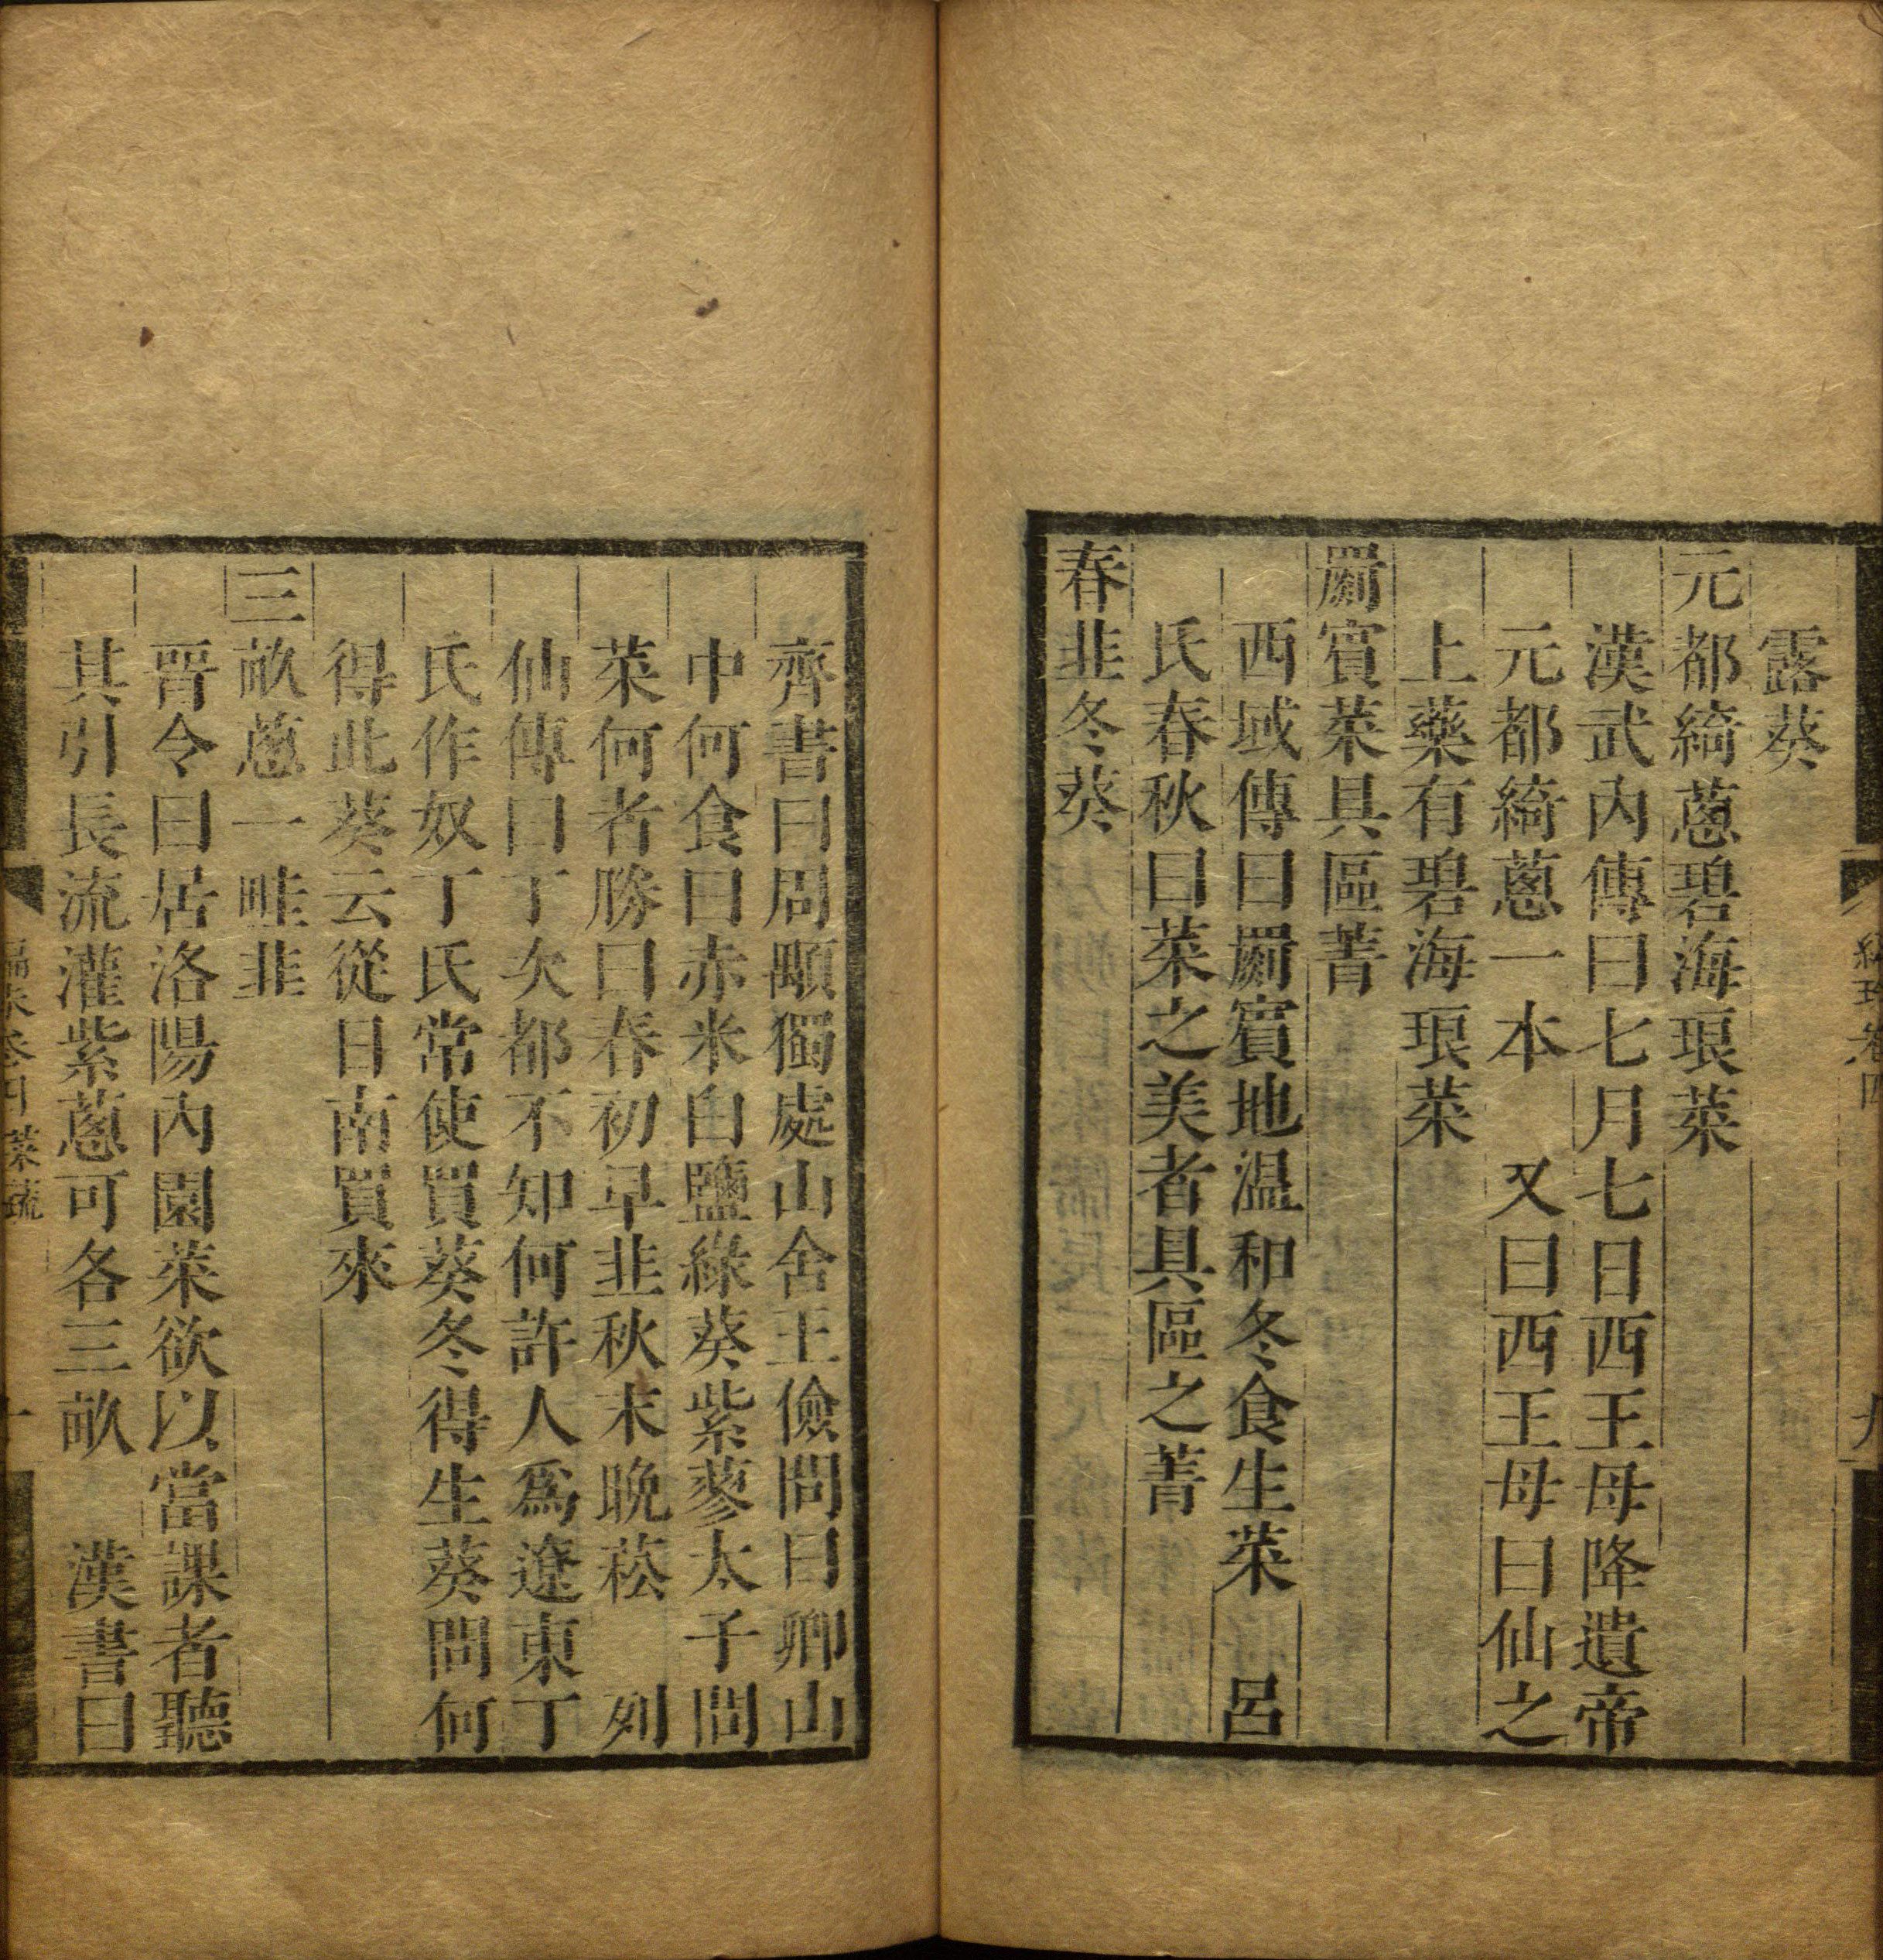 露葵
元都綺蔥碧海琅菜
漢武內傳曰七月七日西王母降遺帝
元都綺蔥一本　又曰西王母曰仙之
上藥有碧海琅菜
罽賓菜具區菁
西域傳曰罽賓地溫和冬食生菜　呂
氏春秋曰菜之美者具區之菁
春韭冬葵
齊書曰周顒獨處山舍王儉問曰卿山
中何食曰赤米白鹽綠葵紫蓼太子問
菜何者勝曰春初早韭秋末晚菘　列
仙傳曰丁次都不知何許人為遼東丁
氏作奴丁氏常使買葵冬得生葵問何
得此葵云從日南買來
三畝蔥一畦韭
晉令曰居洛陽內園菜欲以當課者聽
其引長流灌紫蔥可各三畝　漢書曰
卷四　菜蔬